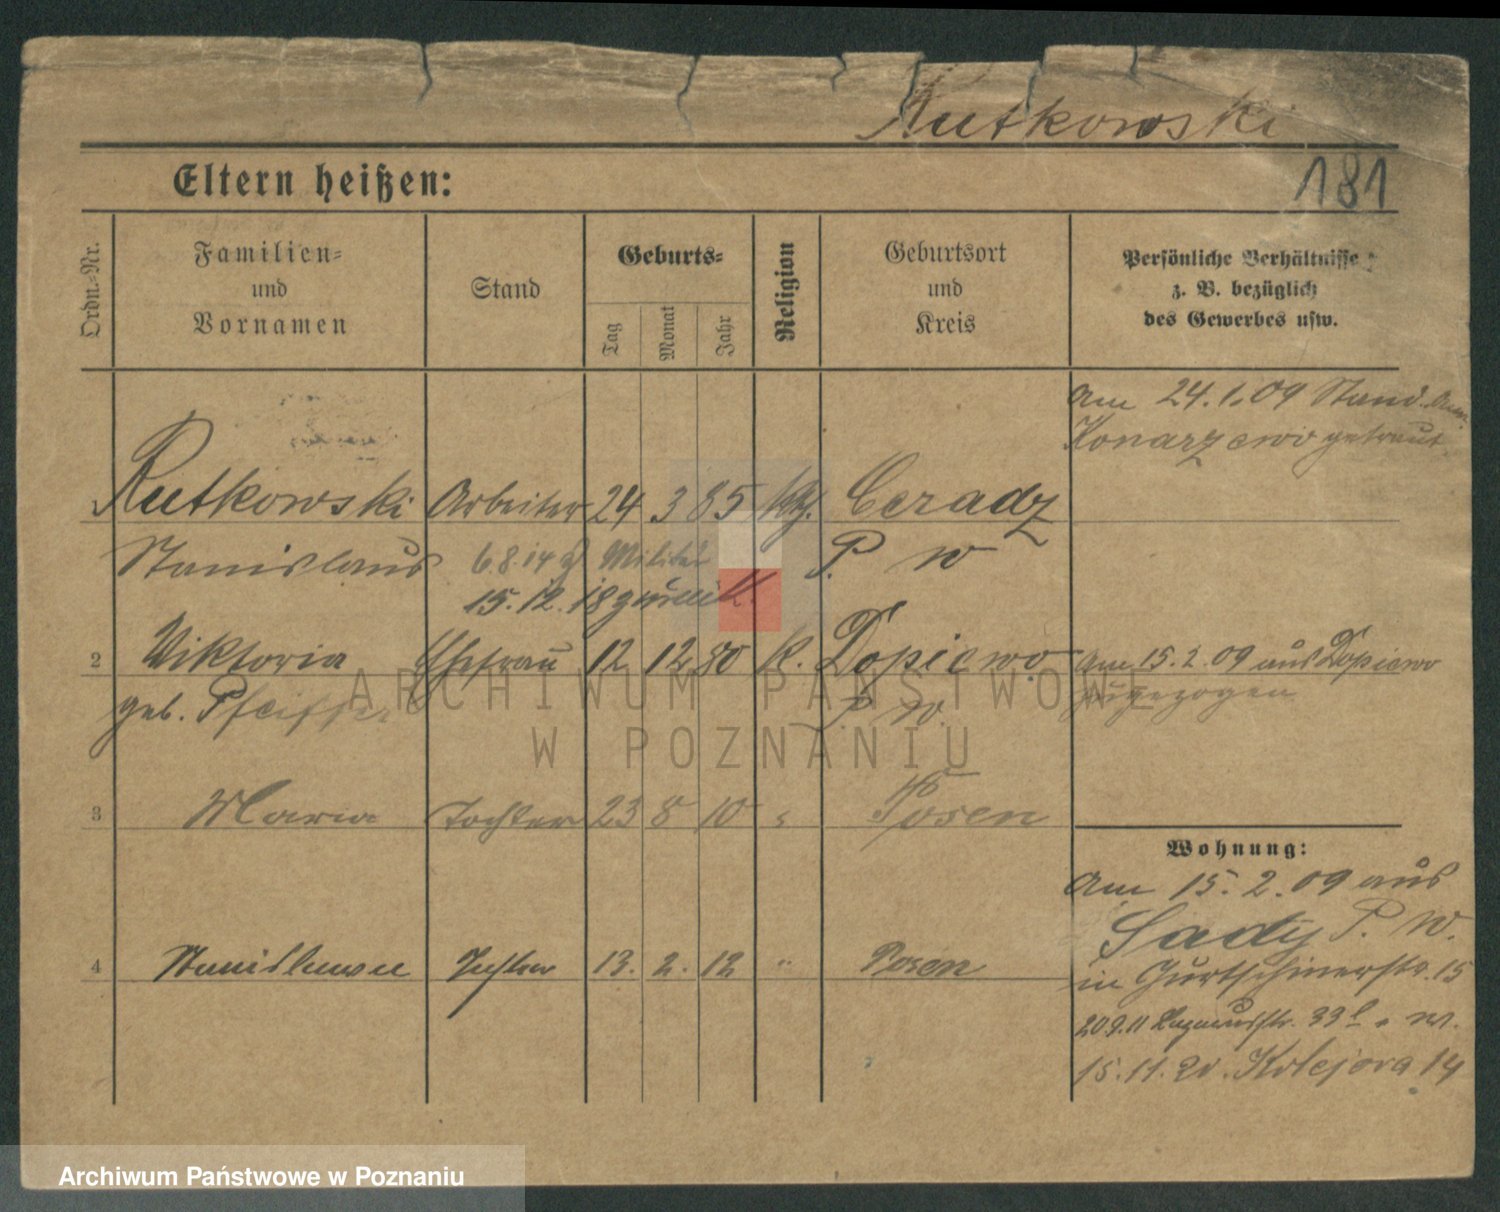 Rutkowski
181
Eltern heißen:
Ordn.-Nr.
Familien-
und
Vornamen
Stand
Geburts-
Tag
Monat
Jahr
Religion
Geburtsort
und
Kreis
Persönliche Verhältnisse
z. B. bezüglich
des Gewerbes usw.
Am 24.1.09 Stand.
Konarzewo getraut
1 Rutkowski Arbeiter 24 3 85 Kth. Ceradz
Stanislaus 6.8.14 Militär P. W
15.12.18 zurück.
2 Viktoria Ehefrau 12 12 80 K. Dopiewo am 15.2.09 aus Dopiewo
geb. Pfeiffer P. W. zugezogen
3 Maria Tochter 23 8 10 " Posen
Wohnung:
Am 15.2.09 aus
Sady P. W.
4 Stanislawa Tochter 13. 2. 12 " Posen
in Gurtschinerstr. 15
20.9.11 Lazarusstr. 33
15.11.20. Kolejowa 14
ARCHIWUM PAŃSTWOWE
W POZNANIU
Archiwum Państwowe w Poznaniu